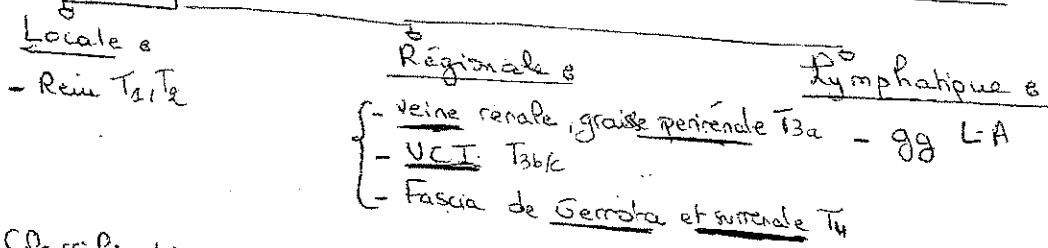 Locale :
- Rein T1, T2
Régionale :
- veine renale, graisse perirénale T3a
- VCI. T3b/c
- Fascia de Gerrota et surrenale T4
Lymphatique :
- gg L-A